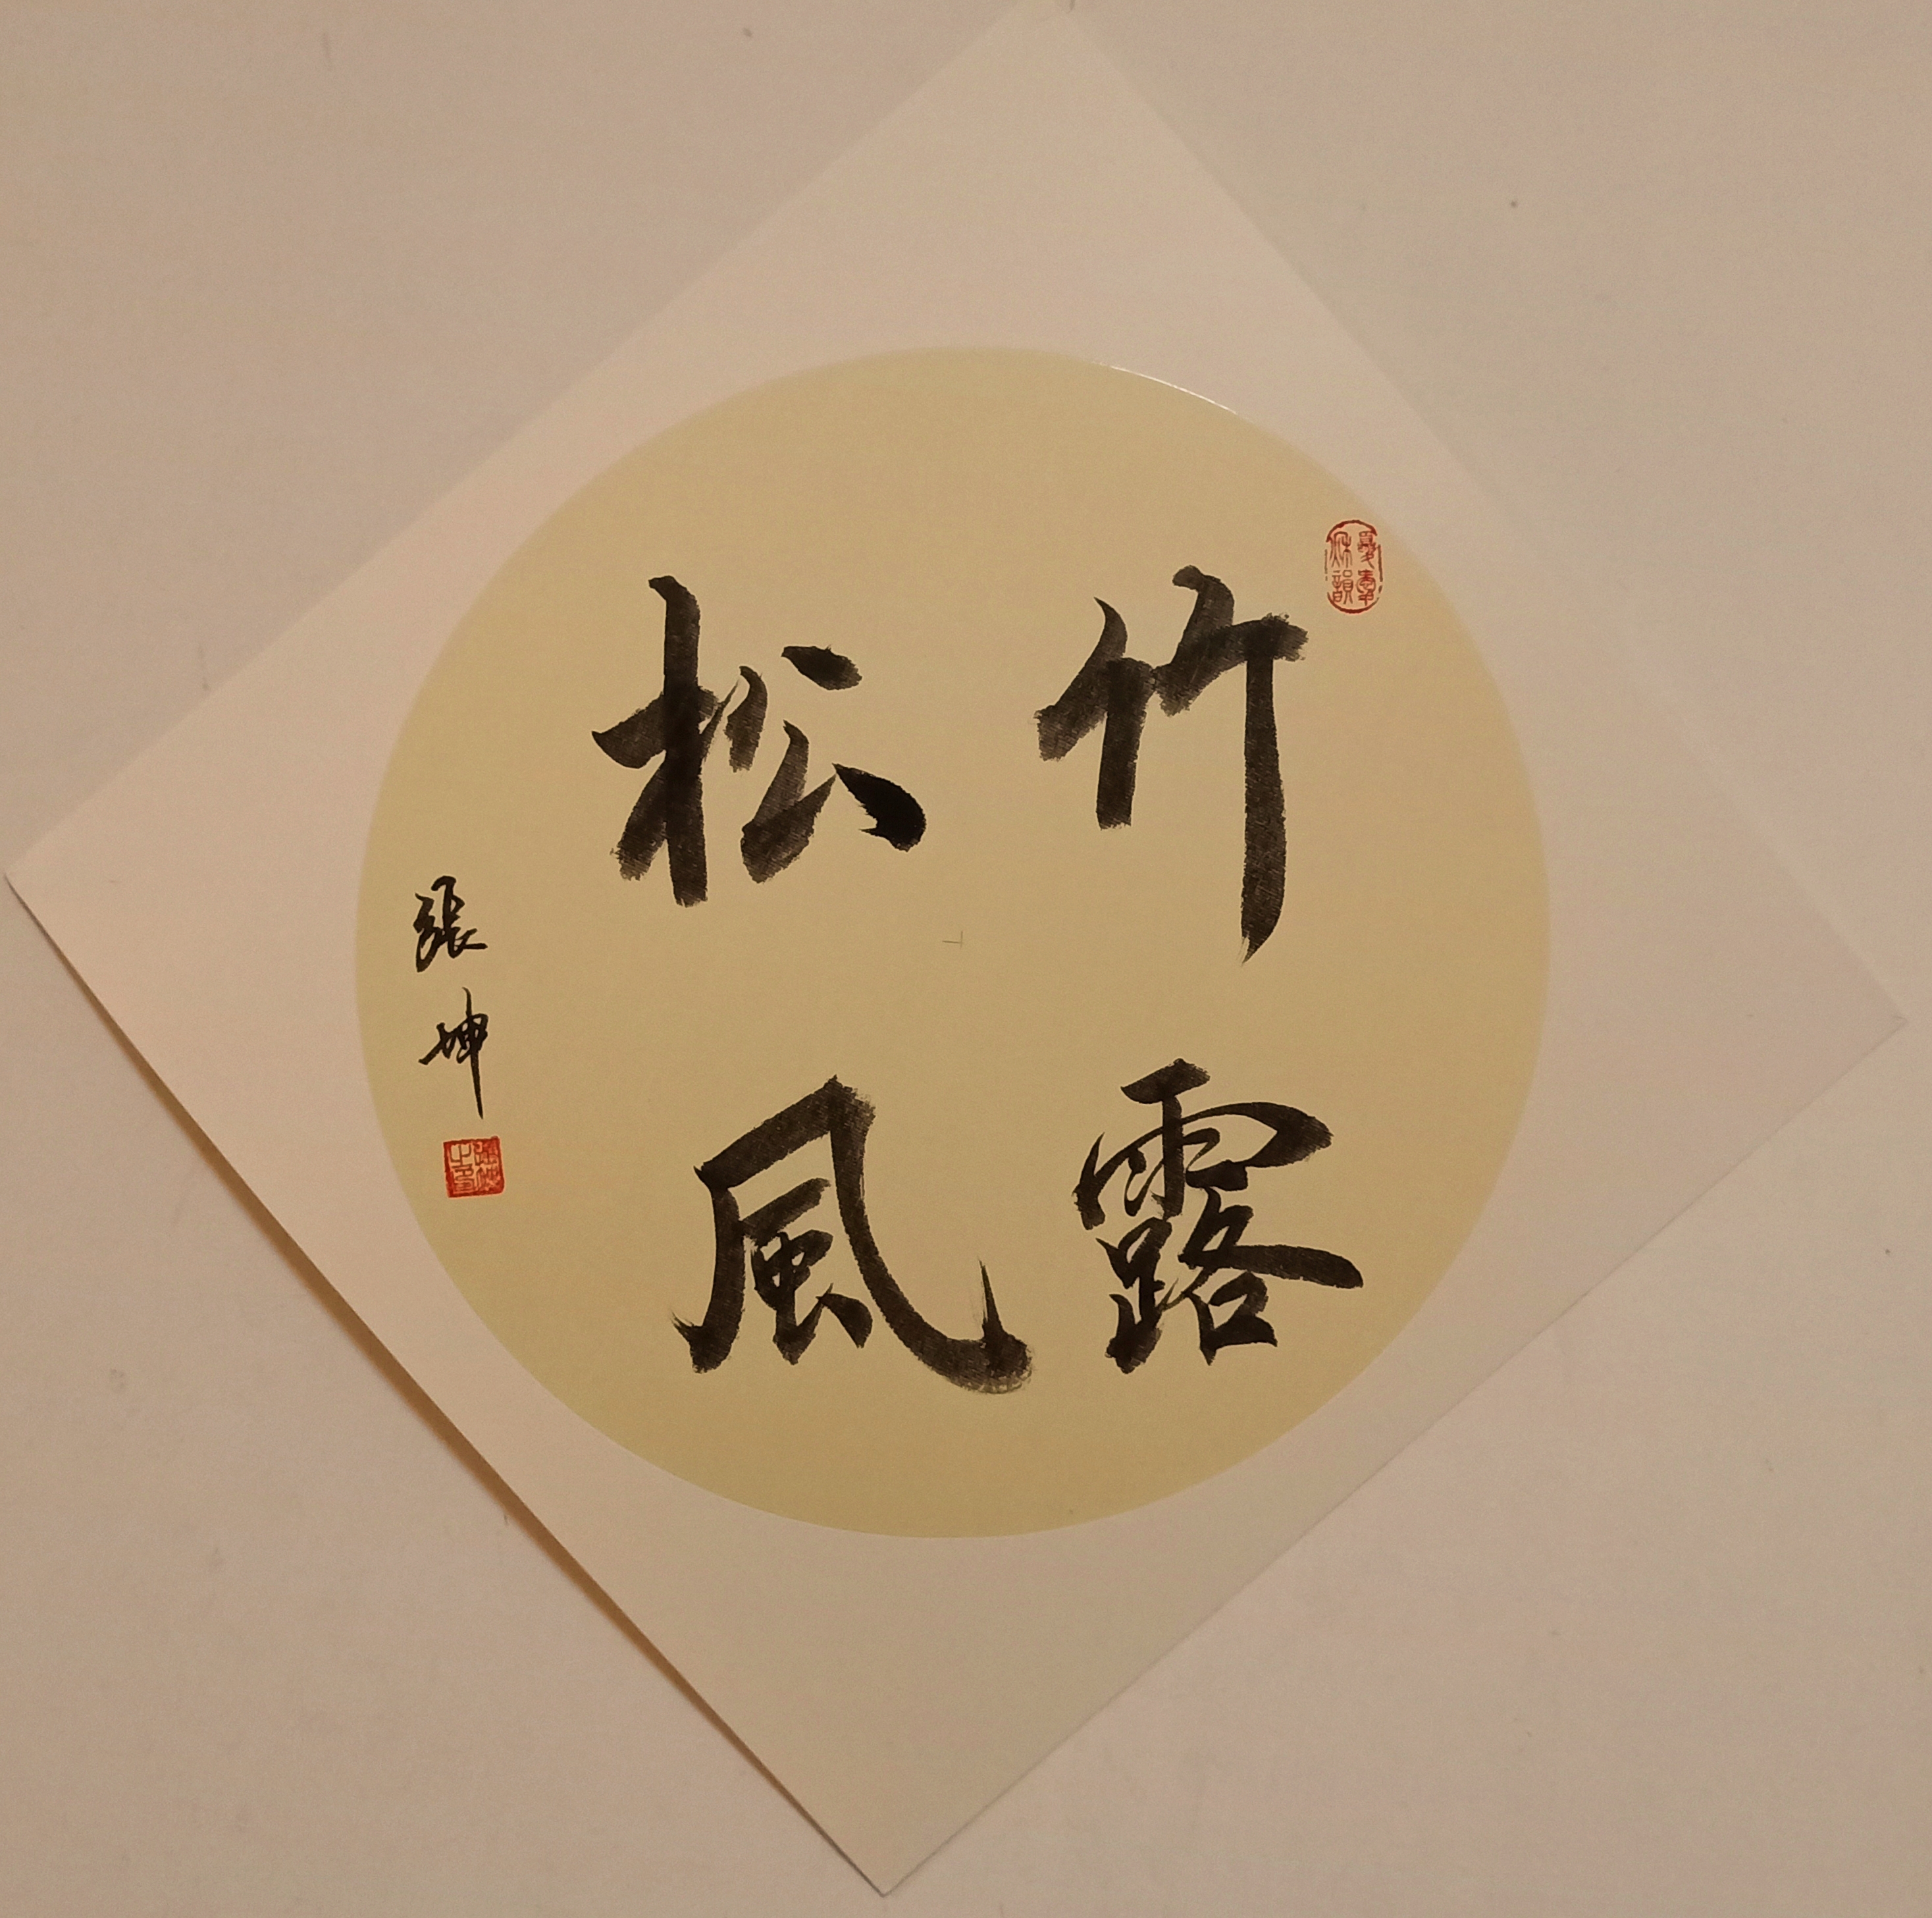 竹露
松風
張坤